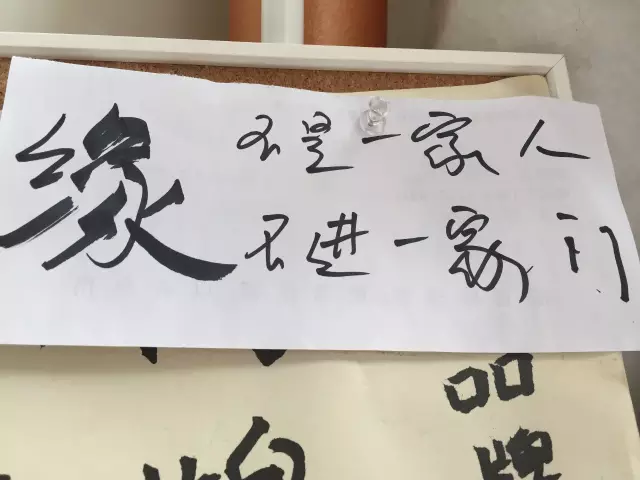 缘
不是一家人
不进一家门
品
牌